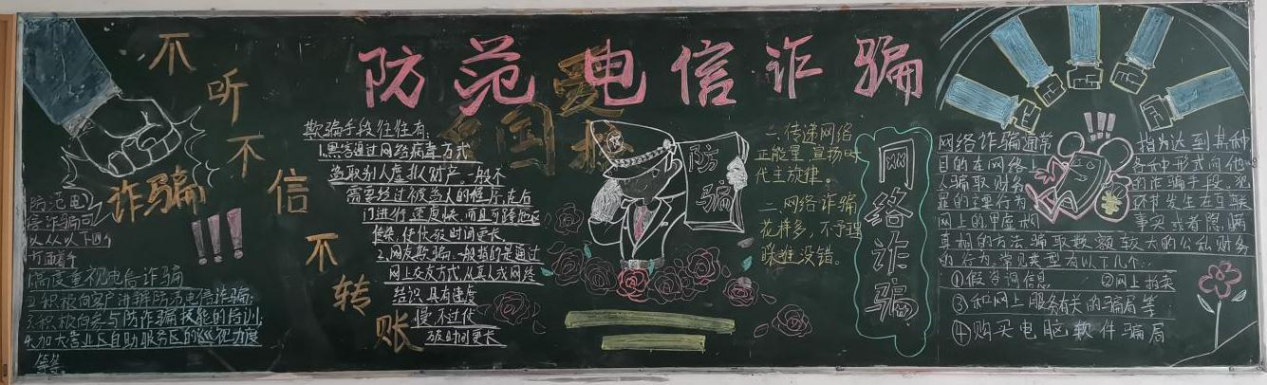 防范电信诈骗
不听不信不转账
诈骗!!!
防范电
信诈骗可
以从以下四个
方面着手
1.高度重视电信诈骗
2.积极向客户讲解防范电信诈骗;
3.积极向参与防诈骗技能的培训,
4.加大营业区自助服务区的巡视力度
等等。
欺骗手段往往有:
1.黑客通过网络病毒方式
盗取别人虚拟财产。一般不
需要经过被盗人的程序,在后
门进行,速度快,而且可跨地区
传染,使侦破时间更长
2.网友欺骗,一般指的是通过
网上交友方式从真人或网络
结识,具有速度
慢,不过侦
破时间更长
防骗
一、传递网络
正能量,宣扬时
代主旋律。
二、网络诈骗
花样多,不予理
睬准没错。
网络诈骗
网络诈骗通常 指为达到某种
目的在网络上 以各种形式向他
人骗取财物 的诈骗手段。犯
罪的主要行为 环节发生在互联
网上的用虚构 事实或者隐瞒
真相的方法,骗取数额较大的公私财务
的行为,常见类型有以下几个:
①假咨询信息 ②网上拍卖
③和网上服务有关的骗局等
④购买电脑软件骗局